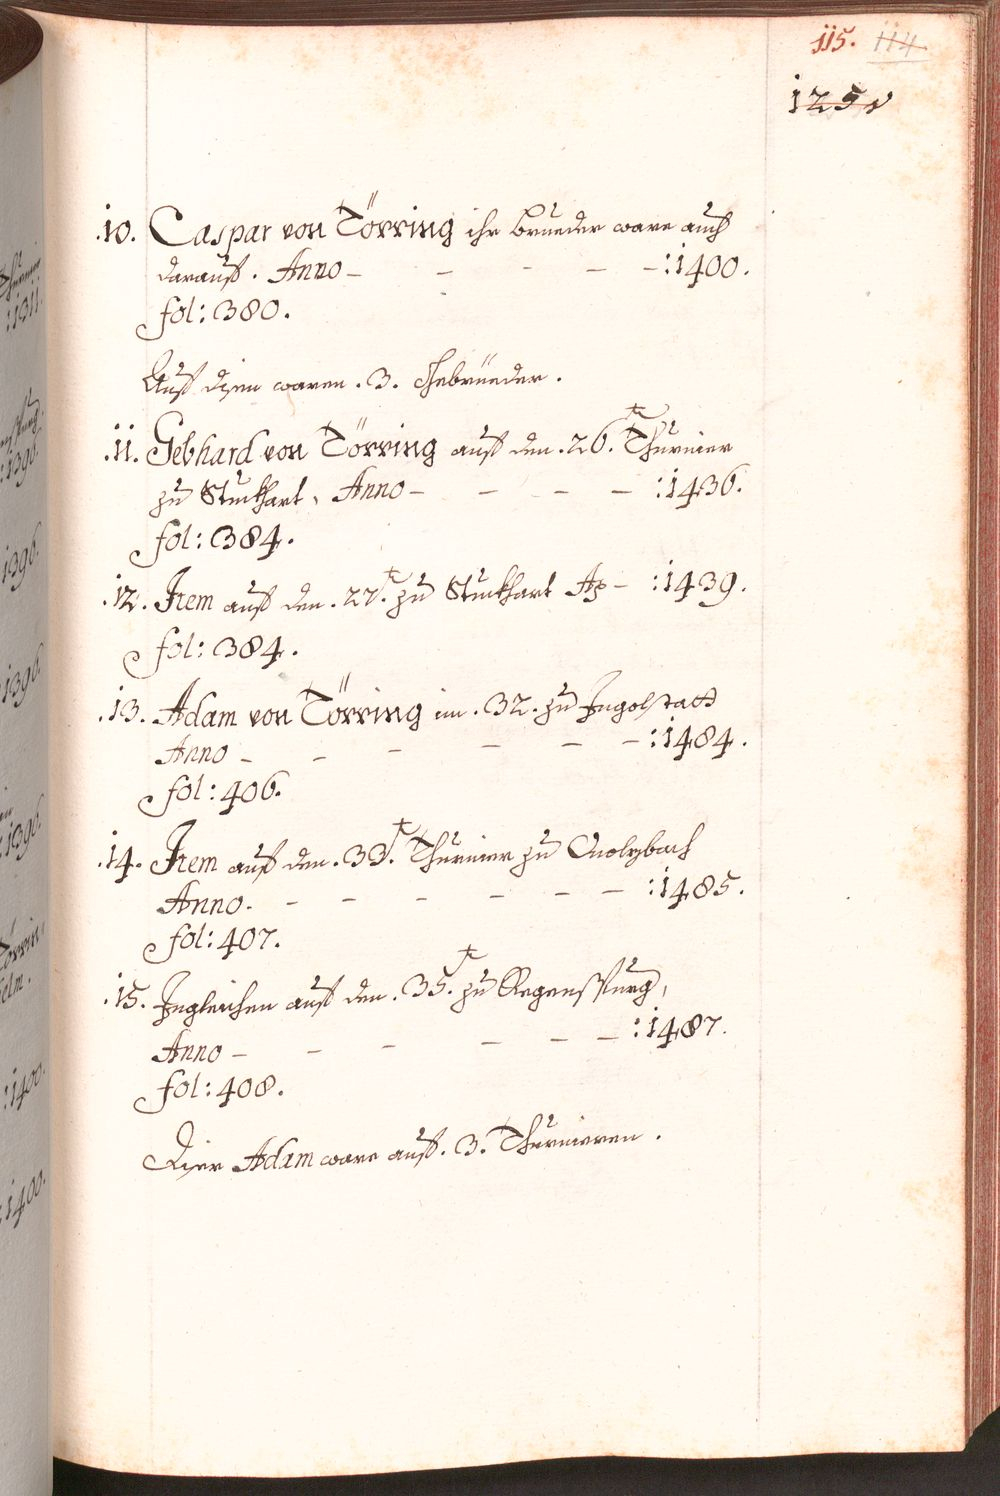 115. 114
125
.10. Caspar von Törring ihr brueder ware auch
darauff. Anno – – – – – :1400.
fol: 380.
Auff disen waren .3. Gebrüeder.
.11. Gebhard von Törring auff den .26.t Thurnier
zu Stuckhart, Anno – – – – :1436.
fol: 384.
.12. Item auff den .27.t zu Stuckhart Ao – :1439.
fol: 384.
.13. Adam von Törring im .32. zu Ingolstatt
Anno – – – – – – :1484.
fol: 406.
.14. Item auff den .33.t Thurnier zu Onolzbach
Anno. – – – – – – :1485.
fol: 407.
.15. Ingleichen auff den .35.t zu Regenspurg,
Anno – – – – – – :1487.
fol: 408.
Diser Adam ware auff .3. Thurnieren.